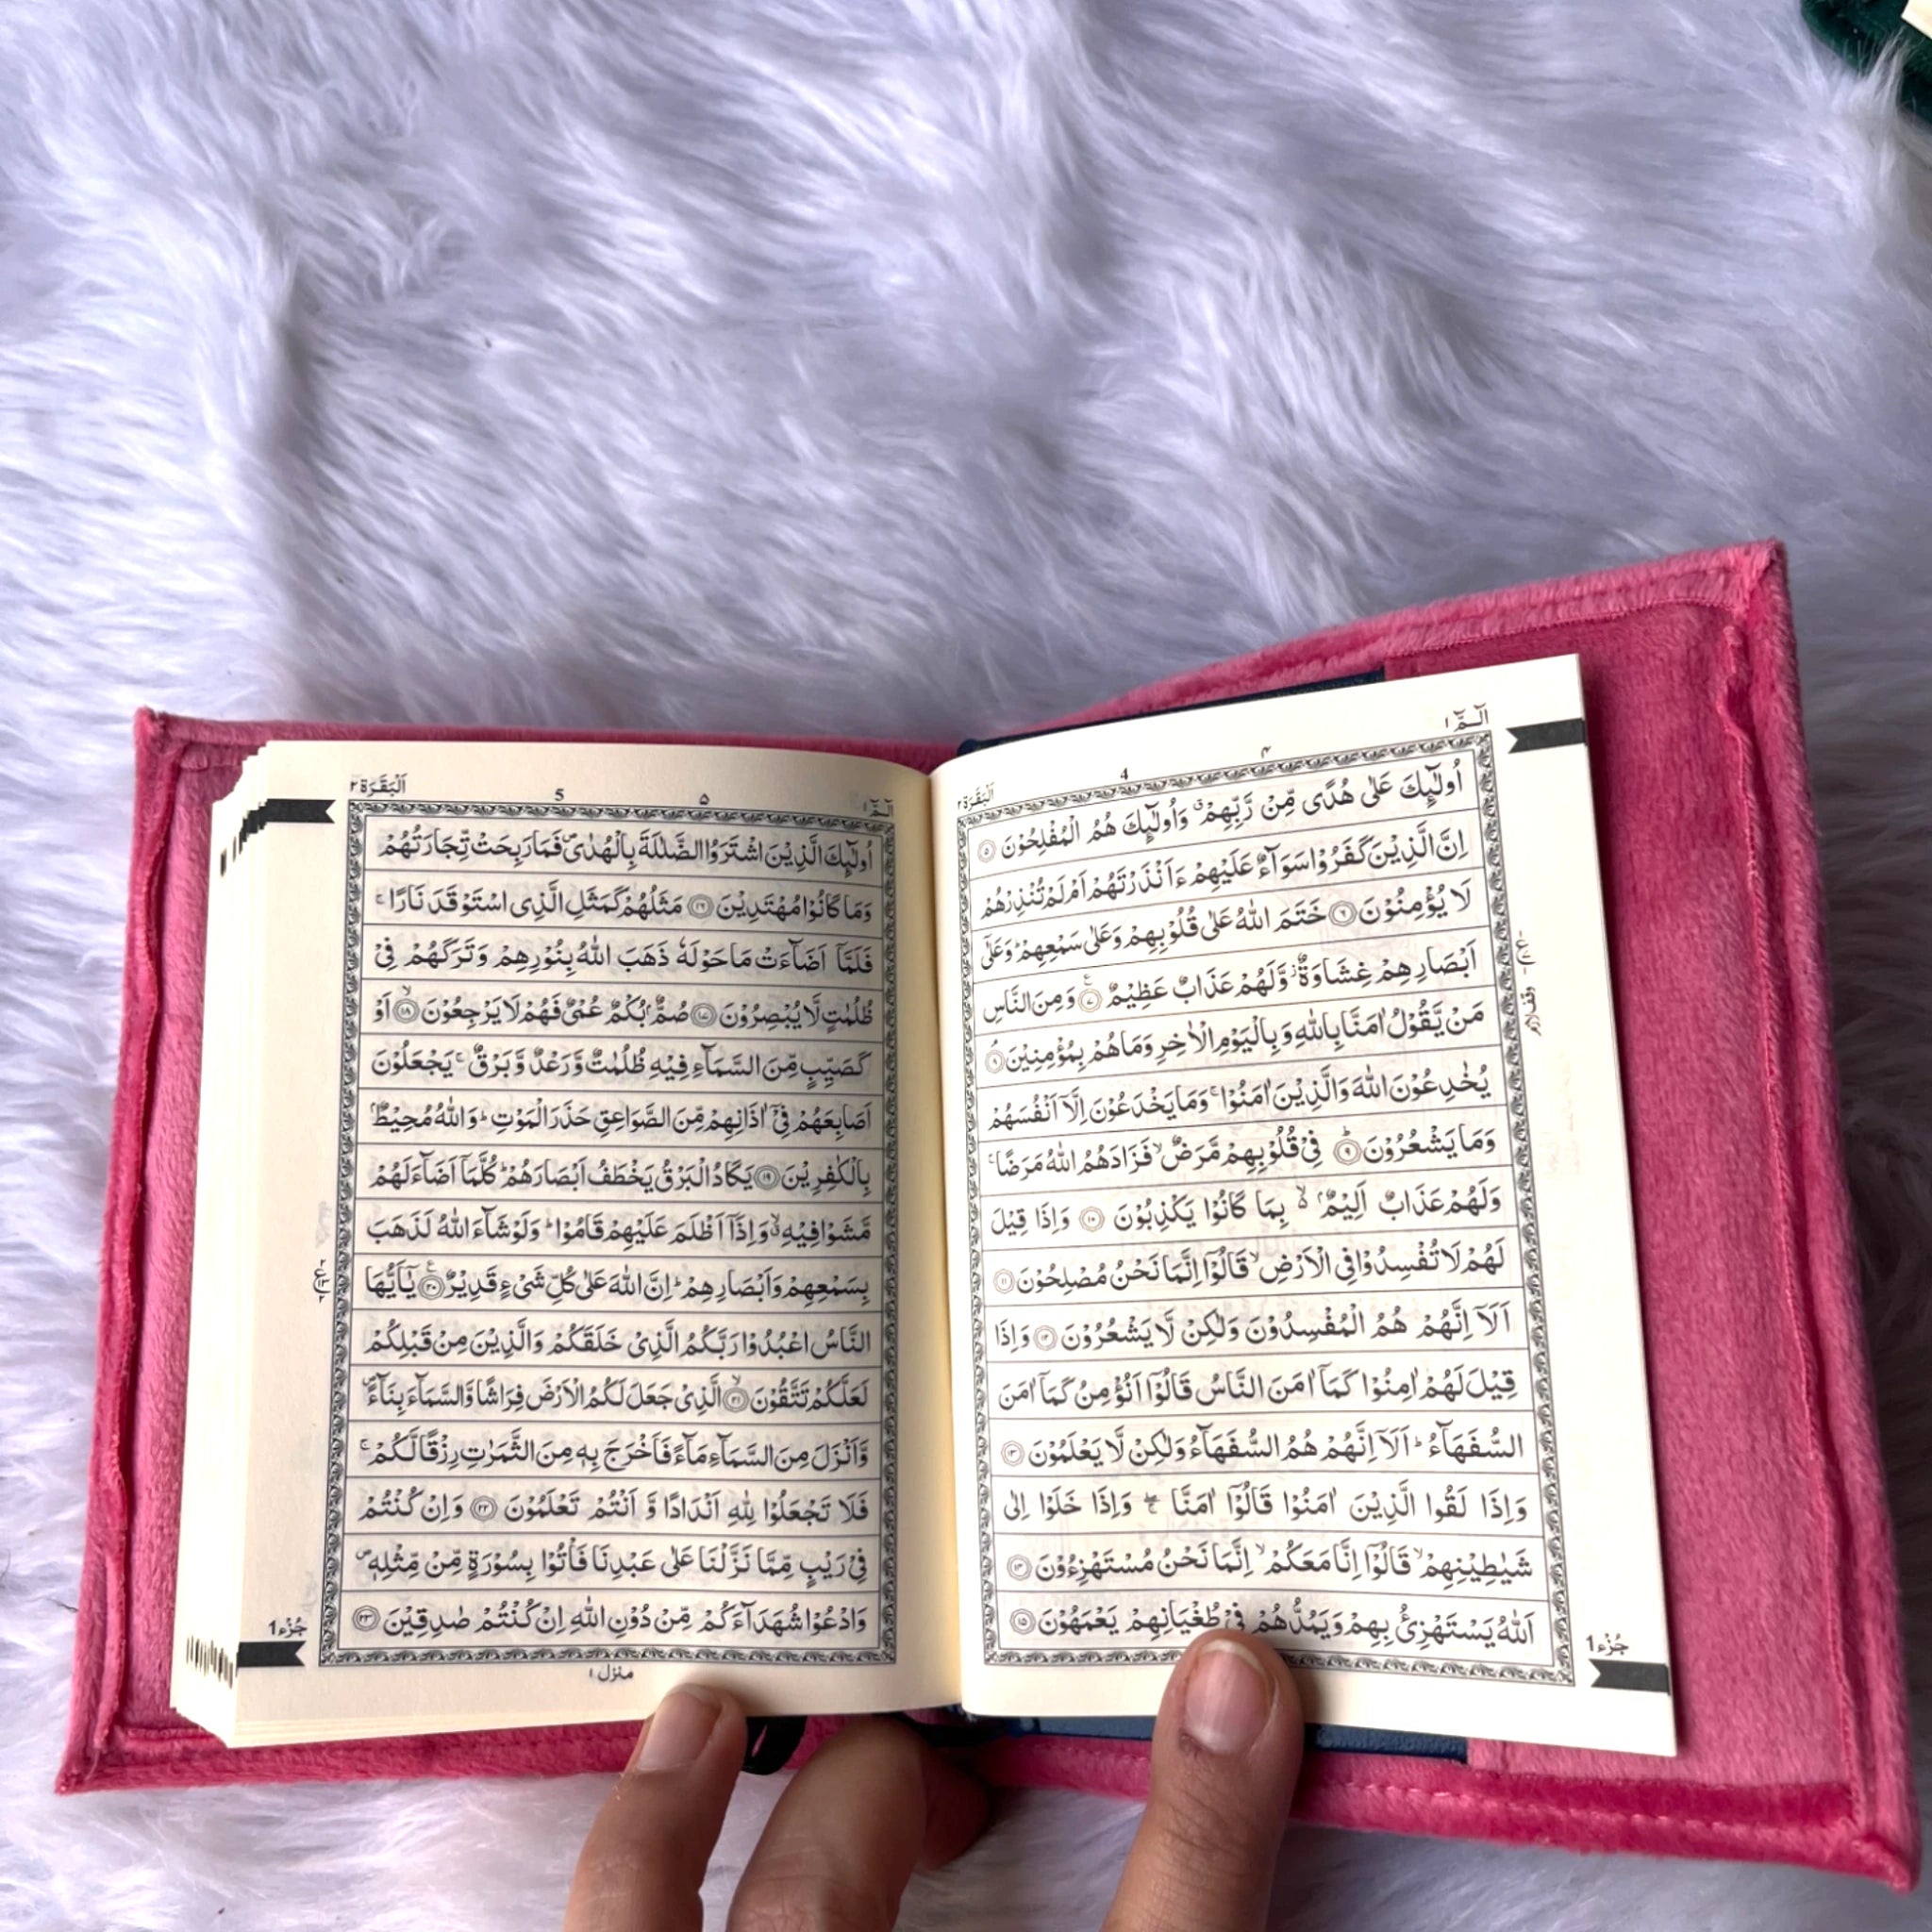 الٓمّٓ ١
۴
4
اَلْبَقَرَة ٢
اُولٰٓئِكَ عَلٰى هُدًى مِّنْ رَّبِّهِمْ ۗ وَاُولٰٓئِكَ هُمُ الْمُفْلِحُوْنَ ۝٥
اِنَّ الَّذِيْنَ كَفَرُوْا سَوَآءٌ عَلَيْهِمْ ءَاَنْذَرْتَهُمْ اَمْ لَمْ تُنْذِرْهُمْ
لَا يُؤْمِنُوْنَ ۝٦ خَتَمَ اللّٰهُ عَلٰى قُلُوْبِهِمْ وَعَلٰى سَمْعِهِمْ ؕ وَعَلٰٓى
اَبْصَارِهِمْ غِشَاوَةٌ ؗ وَّلَهُمْ عَذَابٌ عَظِيْمٌ ۝٧ وَمِنَ النَّاسِ
مَنْ يَّقُوْلُ اٰمَنَّا بِاللّٰهِ وَبِالْيَوْمِ الْاٰخِرِ وَمَا هُمْ بِمُؤْمِنِيْنَ ۝٨
يُخٰدِعُوْنَ اللّٰهَ وَالَّذِيْنَ اٰمَنُوْا ۚ وَمَا يَخْدَعُوْنَ اِلَّآ اَنْفُسَهُمْ
وَمَا يَشْعُرُوْنَ ؕ ۝٩ فِيْ قُلُوْبِهِمْ مَّرَضٌ ۙ فَزَادَهُمُ اللّٰهُ مَرَضًا ۚ
وَلَهُمْ عَذَابٌ اَلِيْمٌۢ ۙ بِمَا كَانُوْا يَكْذِبُوْنَ ۝١٠ وَاِذَا قِيْلَ
لَهُمْ لَا تُفْسِدُوْا فِى الْاَرْضِ ۙ قَالُوْٓا اِنَّمَا نَحْنُ مُصْلِحُوْنَ ۝١١
اَلَآ اِنَّهُمْ هُمُ الْمُفْسِدُوْنَ وَلٰكِنْ لَّا يَشْعُرُوْنَ ۝١٢ وَاِذَا
قِيْلَ لَهُمْ اٰمِنُوْا كَمَآ اٰمَنَ النَّاسُ قَالُوْٓا اَنُؤْمِنُ كَمَآ اٰمَنَ
السُّفَهَآءُ ؕ اَلَآ اِنَّهُمْ هُمُ السُّفَهَآءُ وَلٰكِنْ لَّا يَعْلَمُوْنَ ۝١٣
وَاِذَا لَقُوا الَّذِيْنَ اٰمَنُوْا قَالُوْٓا اٰمَنَّا ۚۖ وَاِذَا خَلَوْا اِلٰى
شَيٰطِيْنِهِمْ ۙ قَالُوْٓا اِنَّا مَعَكُمْ ۙ اِنَّمَا نَحْنُ مُسْتَهْزِءُوْنَ ۝١٤
اَللّٰهُ يَسْتَهْزِئُ بِهِمْ وَيَمُدُّهُمْ فِيْ طُغْيَانِهِمْ يَعْمَهُوْنَ ۝١٥
وقف لازم
جُزْء1
الٓمّٓ ١
۵
5
اَلْبَقَرَة ٢
اُولٰٓئِكَ الَّذِيْنَ اشْتَرَوُا الضَّلٰلَةَ بِالْهُدٰى ۪ فَمَا رَبِحَتْ تِّجَارَتُهُمْ
وَمَا كَانُوْا مُهْتَدِيْنَ ۝١٦ مَثَلُهُمْ كَمَثَلِ الَّذِى اسْتَوْقَدَ نَارًا ۚ
فَلَمَّآ اَضَآءَتْ مَا حَوْلَهٗ ذَهَبَ اللّٰهُ بِنُوْرِهِمْ وَتَرَكَهُمْ فِيْ
ظُلُمٰتٍ لَّا يُبْصِرُوْنَ ۝١٧ صُمٌّۢ بُكْمٌ عُمْيٌ فَهُمْ لَا يَرْجِعُوْنَ ۙ ۝١٨ اَوْ
كَصَيِّبٍ مِّنَ السَّمَآءِ فِيْهِ ظُلُمٰتٌ وَّرَعْدٌ وَّبَرْقٌ ۚ يَجْعَلُوْنَ
اَصَابِعَهُمْ فِيْٓ اٰذَانِهِمْ مِّنَ الصَّوَاعِقِ حَذَرَ الْمَوْتِ ؕ وَاللّٰهُ مُحِيْطٌۢ
بِالْكٰفِرِيْنَ ۝١٩ يَكَادُ الْبَرْقُ يَخْطَفُ اَبْصَارَهُمْ ؕ كُلَّمَآ اَضَآءَ لَهُمْ
مَّشَوْا فِيْهِ ۙ وَاِذَآ اَظْلَمَ عَلَيْهِمْ قَامُوْا ؕ وَلَوْ شَآءَ اللّٰهُ لَذَهَبَ
بِسَمْعِهِمْ وَاَبْصَارِهِمْ ؕ اِنَّ اللّٰهَ عَلٰى كُلِّ شَيْءٍ قَدِيْرٌ ۝٢٠ يٰٓاَيُّهَا
النَّاسُ اعْبُدُوْا رَبَّكُمُ الَّذِيْ خَلَقَكُمْ وَالَّذِيْنَ مِنْ قَبْلِكُمْ
لَعَلَّكُمْ تَتَّقُوْنَ ۙ ۝٢١ الَّذِيْ جَعَلَ لَكُمُ الْاَرْضَ فِرَاشًا وَّالسَّمَآءَ بِنَآءً ۪
وَّاَنْزَلَ مِنَ السَّمَآءِ مَآءً فَاَخْرَجَ بِهٖ مِنَ الثَّمَرٰتِ رِزْقًا لَّكُمْ ۚ
فَلَا تَجْعَلُوْا لِلّٰهِ اَنْدَادًا وَّ اَنْتُمْ تَعْلَمُوْنَ ۝٢٢ وَاِنْ كُنْتُمْ
فِيْ رَيْبٍ مِّمَّا نَزَّلْنَا عَلٰى عَبْدِنَا فَاْتُوْا بِسُوْرَةٍ مِّنْ مِّثْلِهٖ ۪
وَادْعُوْا شُهَدَآءَكُمْ مِّنْ دُوْنِ اللّٰهِ اِنْ كُنْتُمْ صٰدِقِيْنَ ۝٢٣
جُزْء1
منزل ١